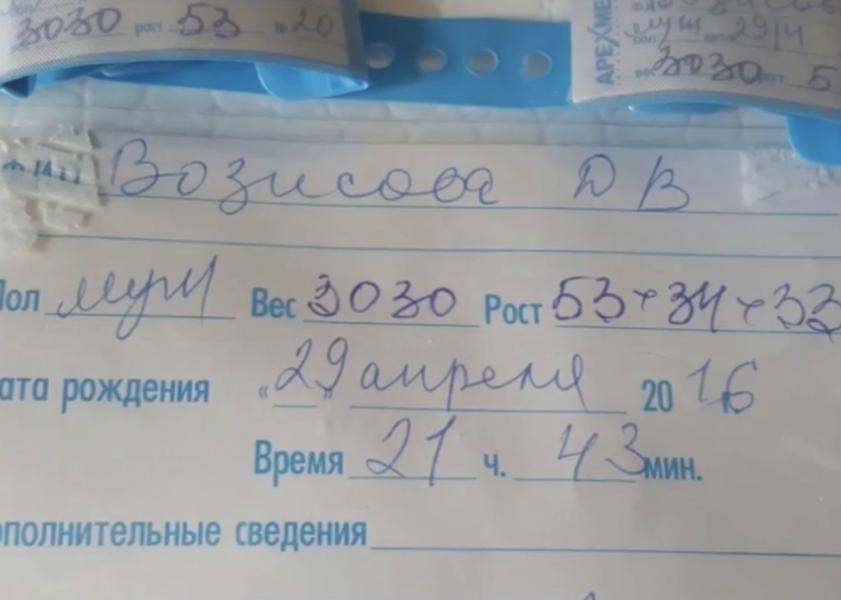 3030 рост 53 20
АРЕХМЕ
муж 29/4
вес 3030 рост 5
Возисова Д В
Пол муж Вес 3030 Рост 53+34+33
ата рождения «29» апреля 2016
Время 21 ч. 43 мин.
ополнительные сведения